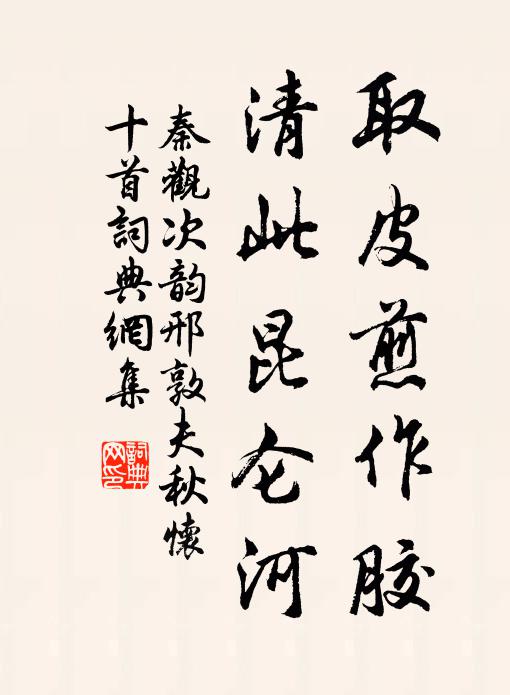 取皮煎作胶
清此昆仑河
秦觀次韵邢敦夫秋懷
十首詞典網集
詞典网印